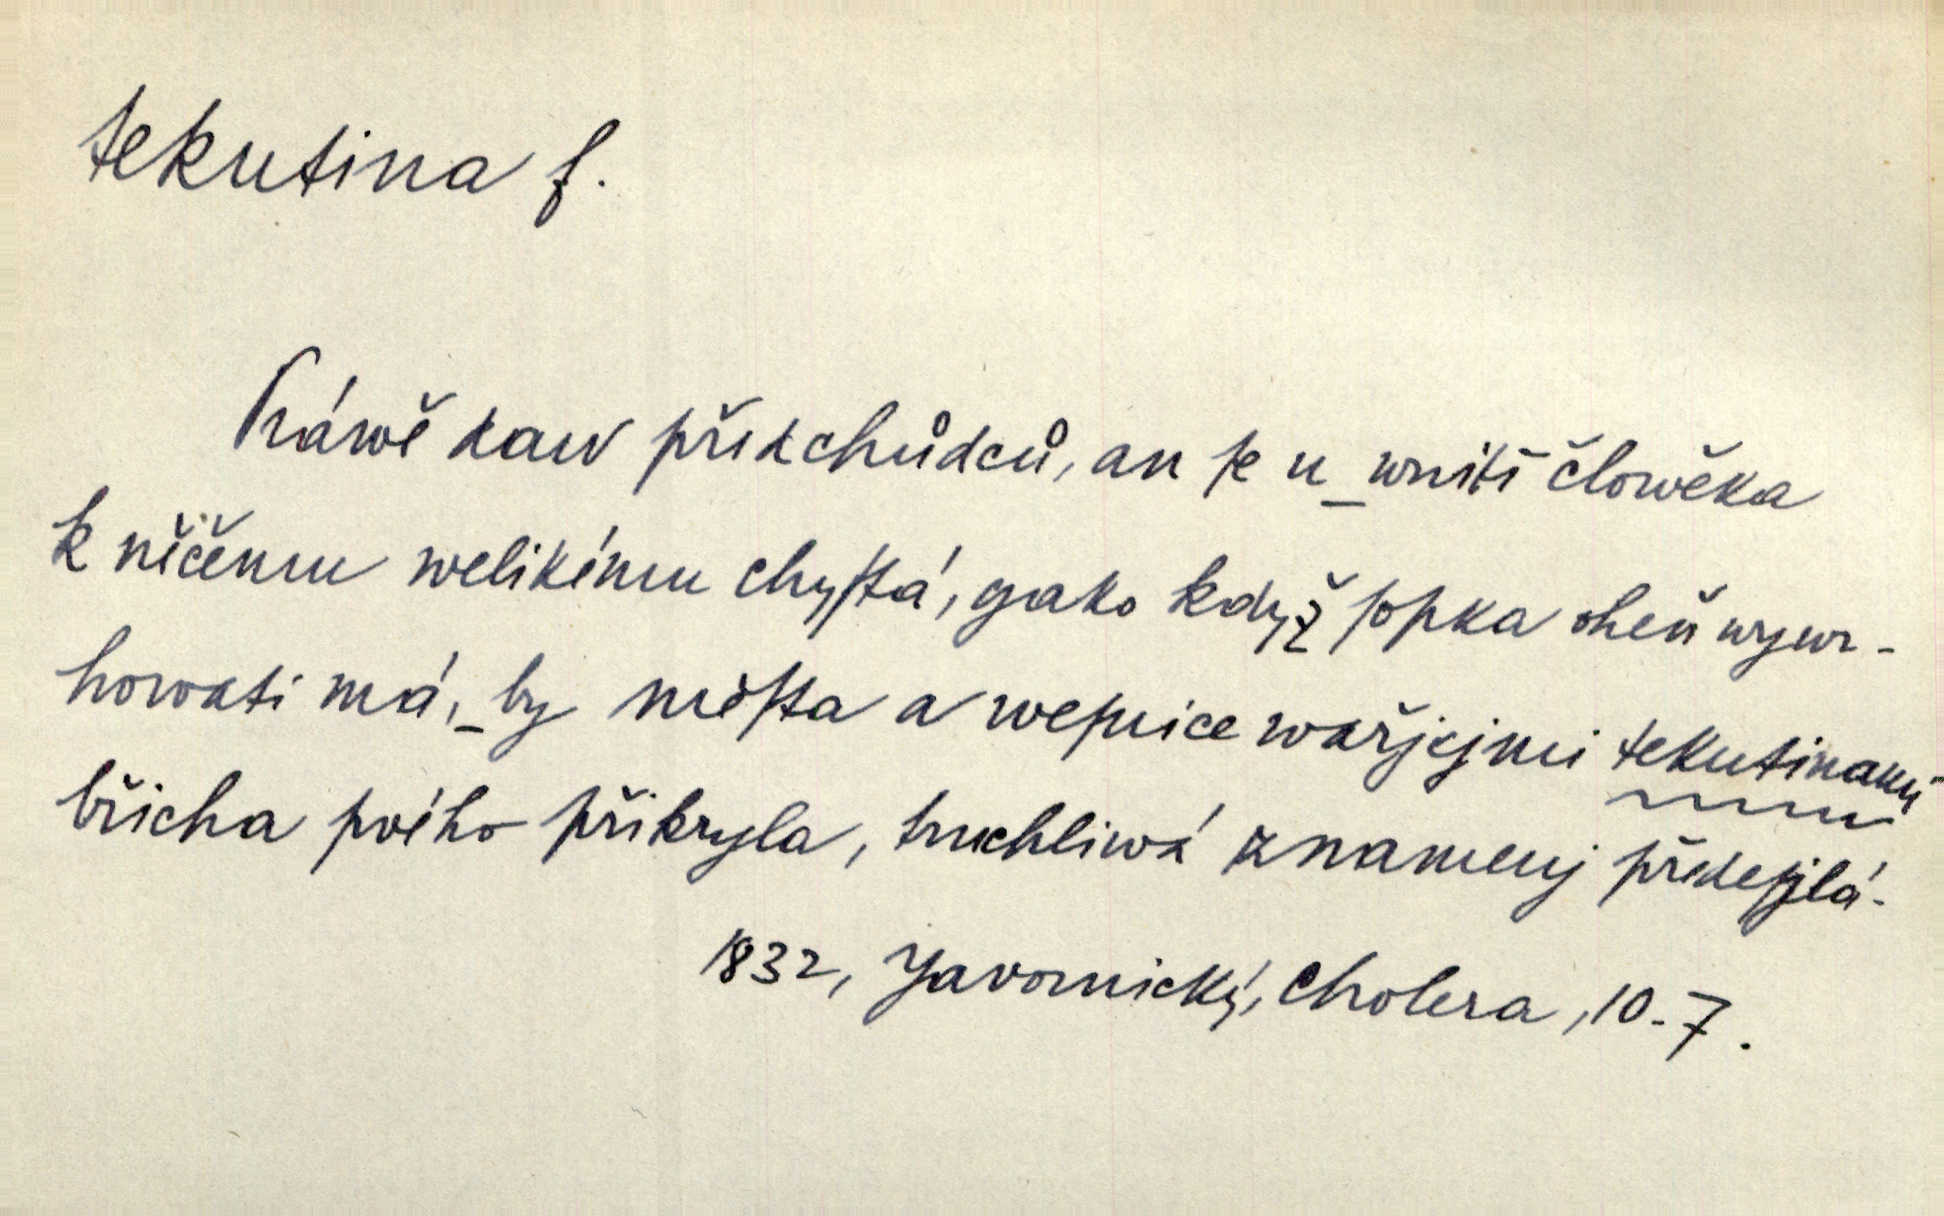 tekutina f.
Práwě daw předchůdců, an ſe u_wnitř člowěka
k něčemu welikému chyſtá, gako když ſopka oheň wywr-
howati má,_by měſta a weſnice wařjcjmi tekutinami
břicha ſvého přikryla, truchliwá znamenj předeſjlá.
1832, Javornický, Cholera, 10-7.